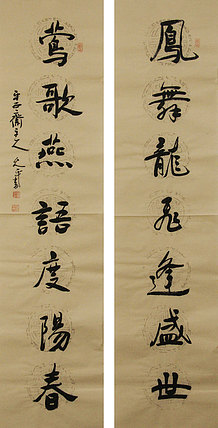 鳳舞龍飛逢盛世
鶯歌燕語度陽春